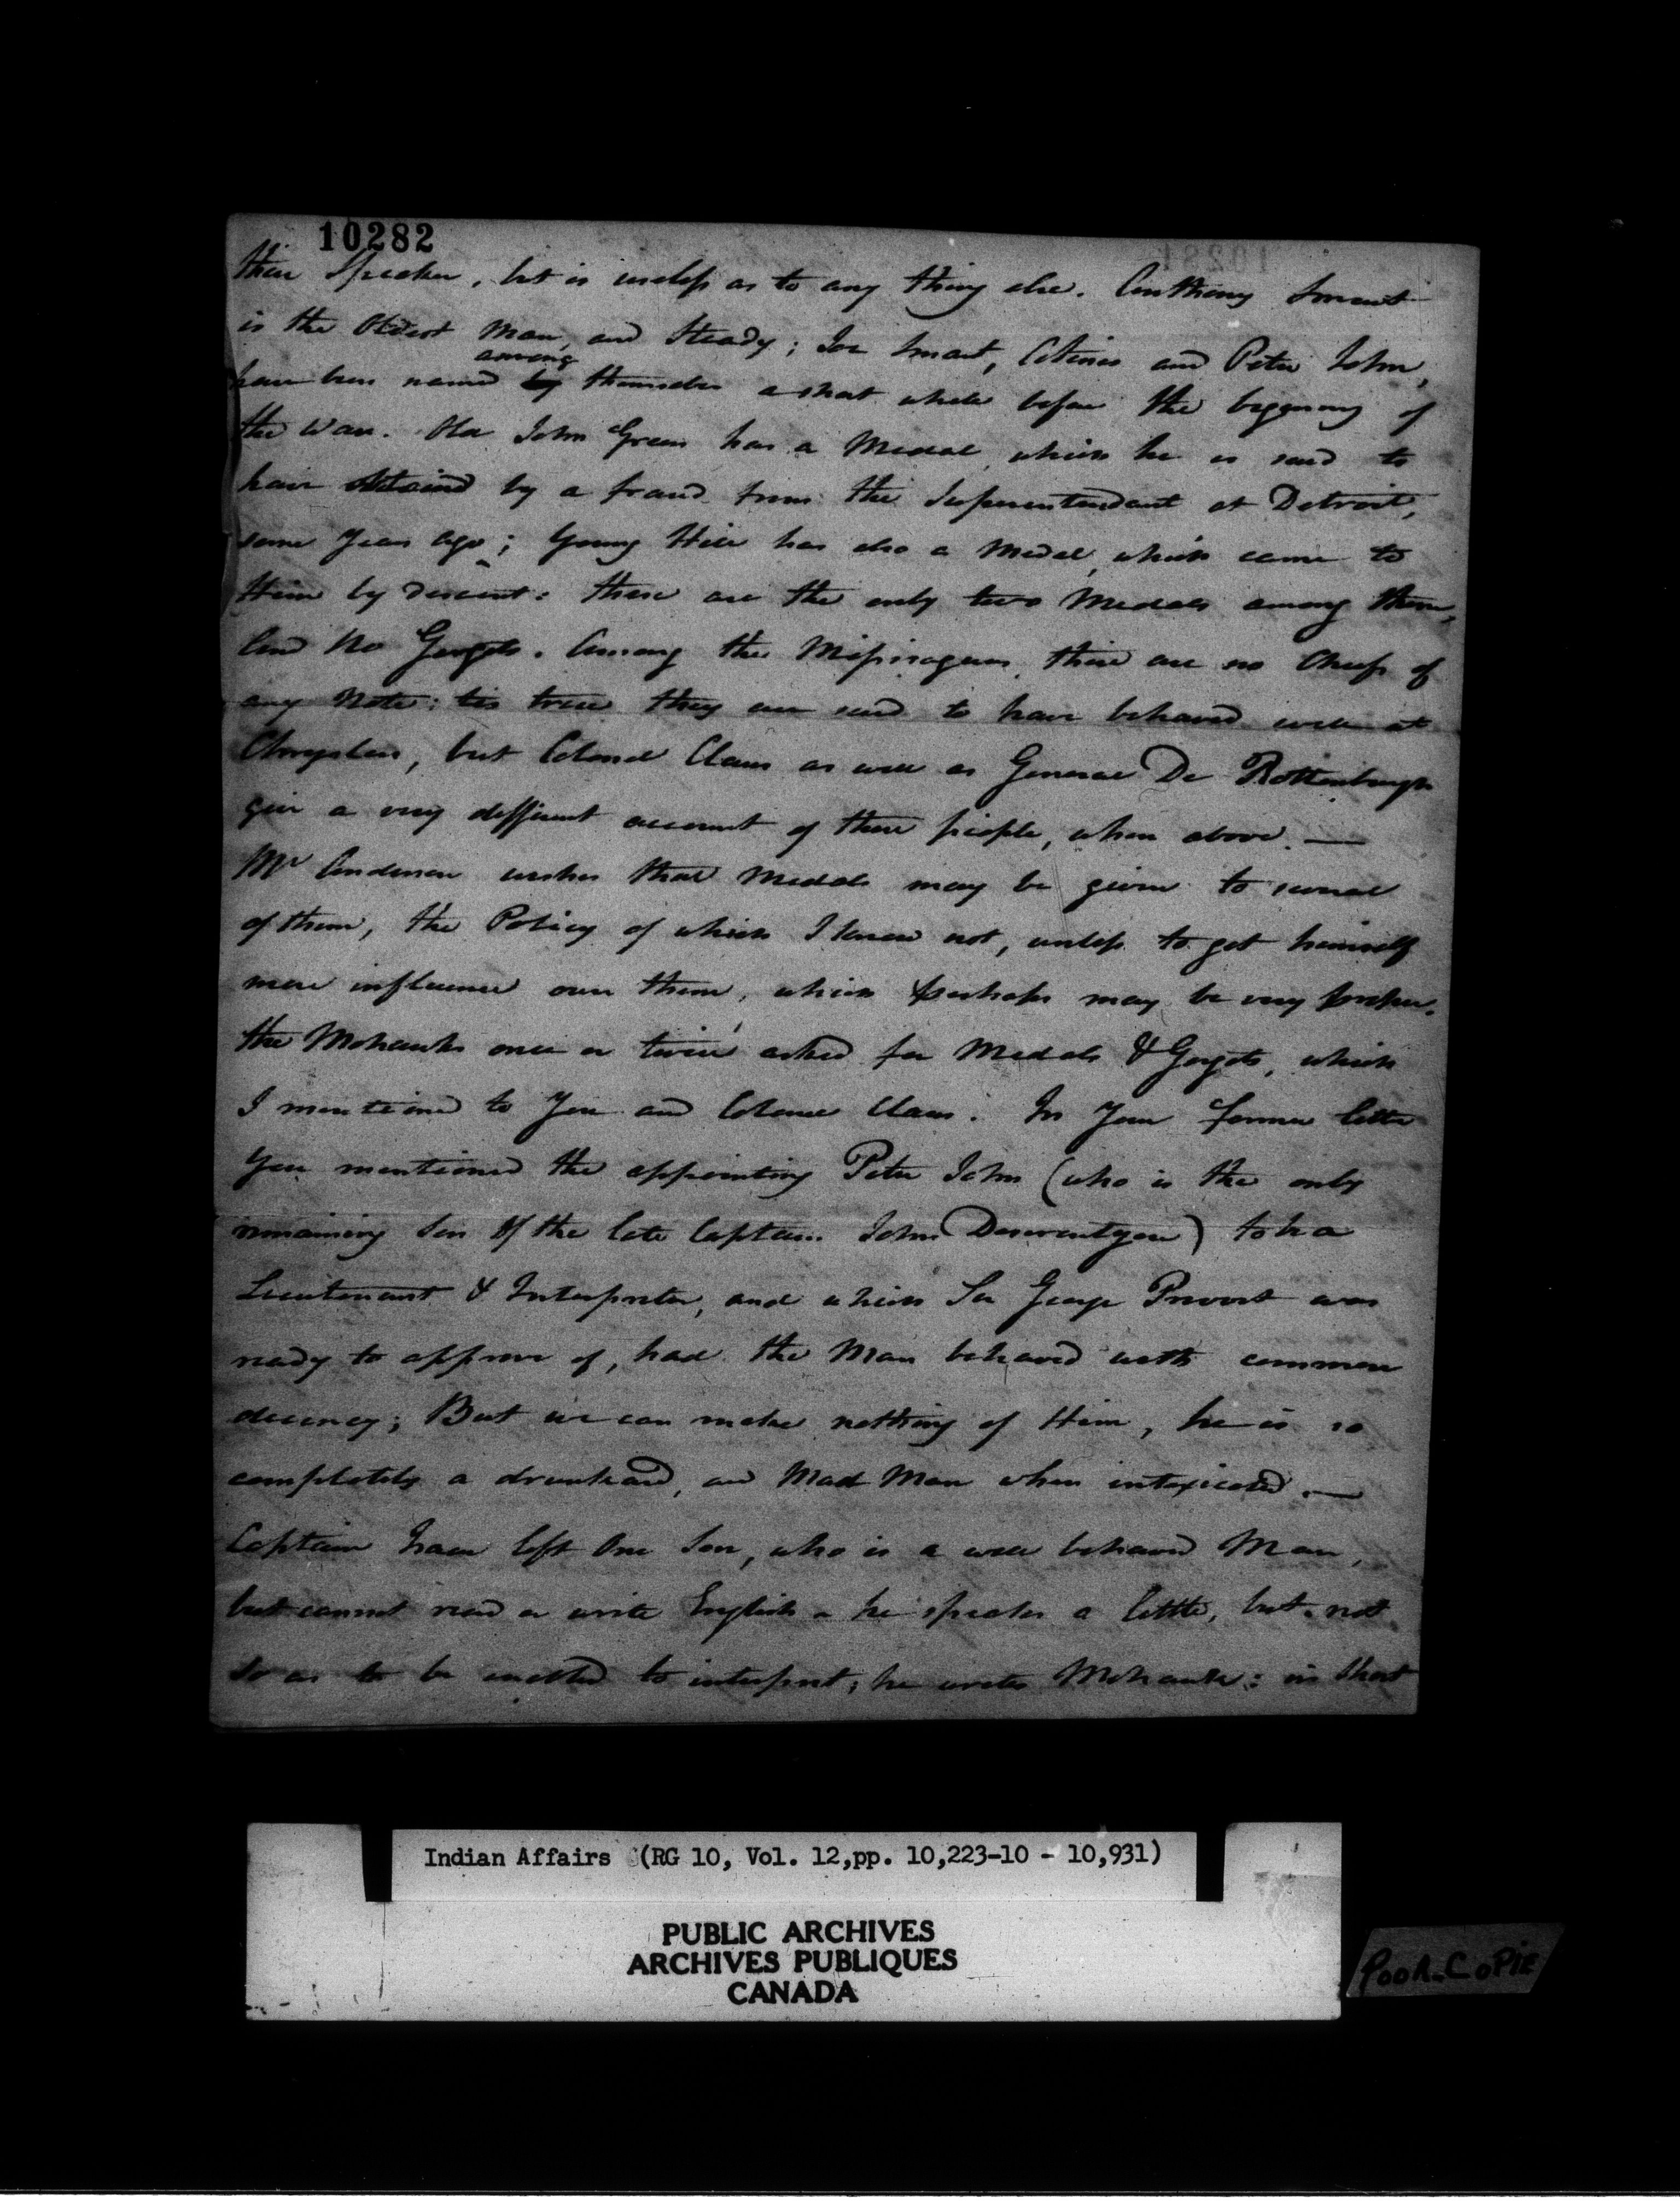 10282
their Speaker, but is useless as to any thing else. Anthony Smart
is the Oldest Man, and Steady; Joe Smart, and Peter John,
have been named by among themselves a short while before the beginning of
the War. Old John Green has a Medal, which he is said to
have obtained by a fraud from the Superentendant at Detroit,
some Years ago; Young Hill has also a Medal, which came to
Him by descent: these are the only two Medals among them,
And No Gorgets. Among the Missisagues there are no Cheifs of
any Note: tis true they are said to have behaved well at
Chryslers, but Colonel Claus as well as General De Rottenburgh
give a very different account of these people, when above. —
Mr Anderson wishes that Medals may be given to several
of them, the Policy of which I know not, unless to get himself
more influence over them, which perhaps may be very proper.
the Mohawks once or twice asked for Medals & Gorgets, which
I mentioned to You and Colonel Claus. In Your former letter
You mentioned the appointing Peter John (who is the only
remaining Son Of the late Captain John Deserontyon) to be a
Lieutenant & Interpreter, and which Sir George Prevost was
ready to approve of, had the Man behaved with common
decency; But we can make nothing of Him, he is so
completely a drunkard, and Mad Man when intoxicated. —
Captain Isaac left One Son, who is a well behaved Man,
but cannot read or write English - he speaks a little, but not
so as to be enabled to interpret; he writes Mohawk: in short
Indian Affairs (RG 10, Vol. 12,pp. 10,223-10 - 10,931)
PUBLIC ARCHIVES
ARCHIVES PUBLIQUES
CANADA
POOR COPIE